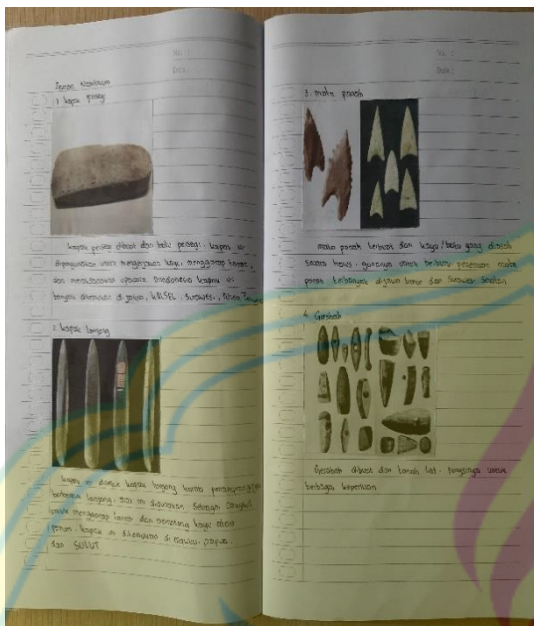 No. :
Date :
Zaman Neolitikum
1. kapak persegi
kapak persegi dibuat dari batu persegi. kapak ini
dipergunakan untuk mengerjakan kayu, menggarap tanah,
dan melaksanakan upacara. Diindonesia kapak ini
banyak ditemukan di jawa, KALSEL, sulawesi, Nusa Tenggara
2. kapak lonjong
kapak ini disebut kapak lonjong karena penampangnya
berbentuk lonjong. alat ini digunakan sebagai cangkul
untuk menggarap tanah dan memotong kayu atau
pohon. kapak ini ditemukan di maluku, papua,
dan SULUT
No. :
Date :
3. mata panah
mata panah terbuat dari kayu/batu yang diasah
secara halus. gunanya untuk berburu. penemuan mata
panah terbanyak dijawa timur dan sulawesi selatan
4. Gerabah
Gerabah dibuat dari tanah liat. fungsinya untuk
berbagai keperluan